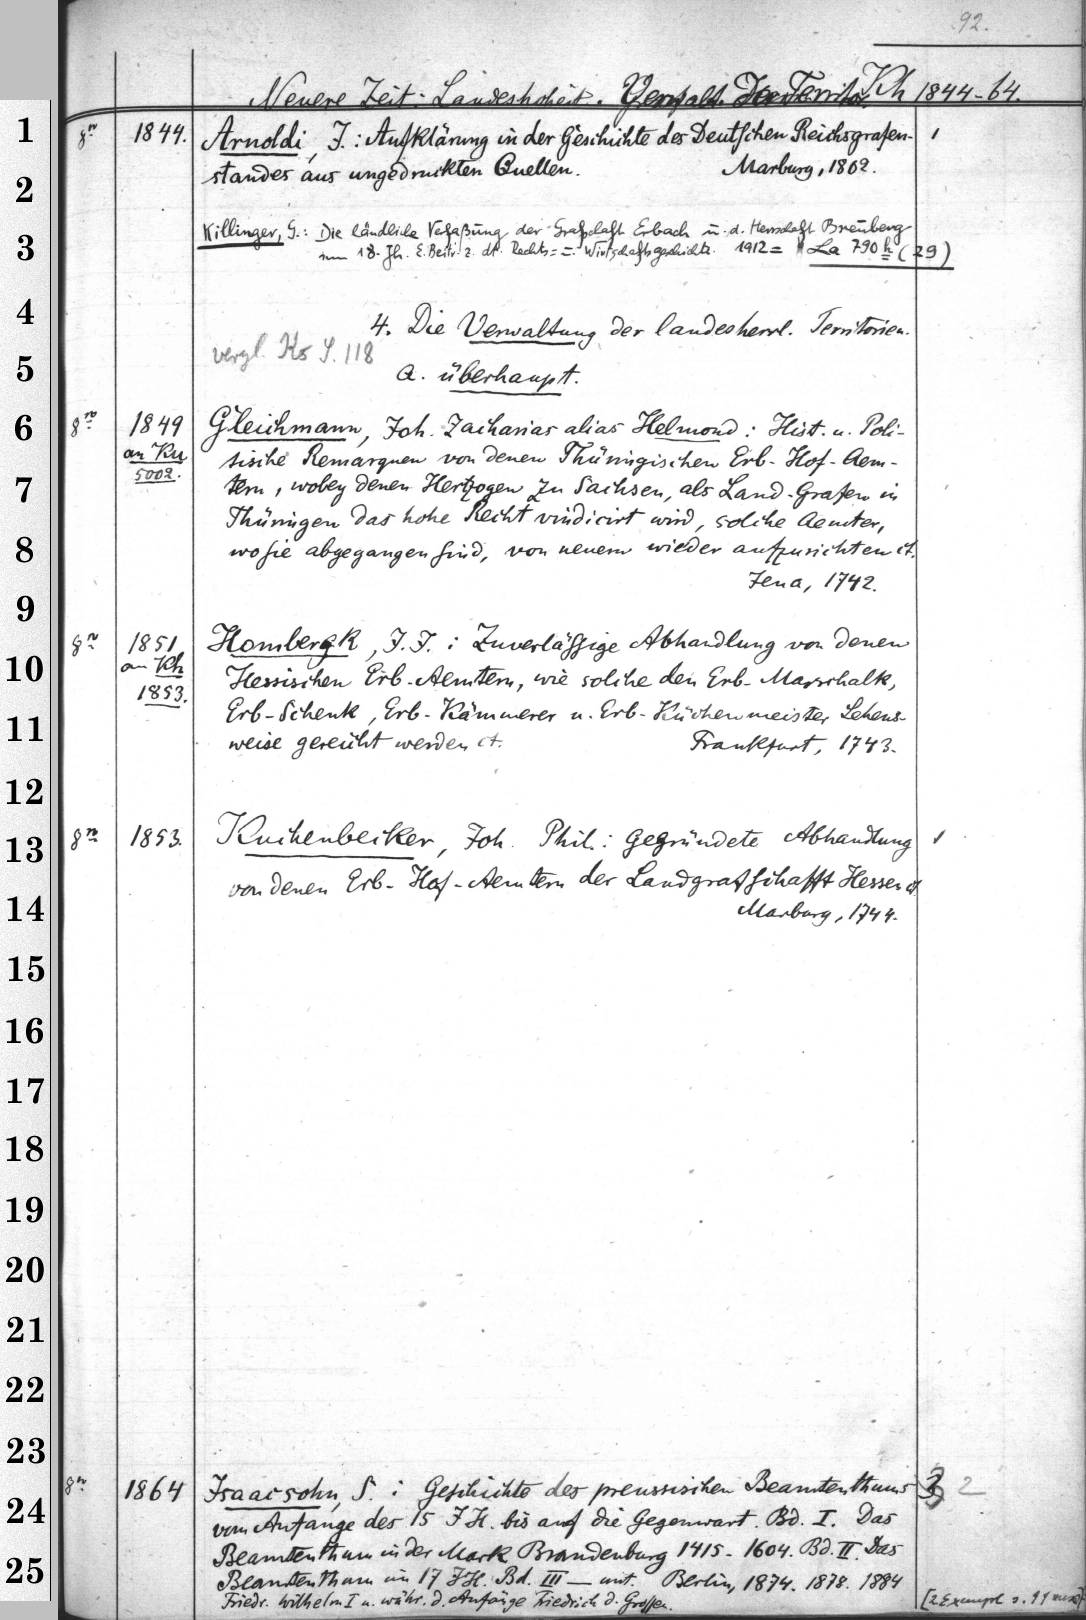 92.
Neuere Zeit: Landeshoheit. Verwalt. Der Territor. Kh 1844-64.
1 8º 1844. Arnoldi, J.: Aufklärung in der Geschichte des Deutschen Reichsgrafen- 1
2 standes aus ungedruckten Quellen. Marburg, 1802.
Killinger, G.: Die ländliche Verfaßung der Grafschaft Erbach u. d. Herrschaft Breuberg
3 im 18. Jh. E. Beitr. z. dt. Rechts= u. Wirtschaftsgeschichte. 1912 = La 790 h (29)
4 4. Die Verwaltung der landesherrl. Territorien.
vergl. Ks S. 118
5 a. überhaupt.
6 8º 1849 Gleichmann, Joh. Zacharias alias Helmond: Hist. u. Poli-
an Ku tische Remarquen von denen Thüringischen Erb-Hof-Aem-
7 5002. tern, wobey denen Hertzogen zu Sachsen, als Land-Grafen in
Thüringen das hohe Recht vindicirt wird, solche Aemter,
8 wo sie abgegangen sind, von neuem wieder aufzurichten ct.
9 Jena, 1742.
8º 1851 Hombergk, J. F.: Zuverläßige Abhandlung von denen
10 an Kh Hessischen Erb-Aemtern, wie solche den Erb-Marschalk,
1853. Erb-Schenk, Erb-Kämmerer u. Erb-Küchenmeister Lehens-
11 weise gereicht werden ct. Frankfurt, 1743.
12
13 8º 1853. Kuchenbecker, Joh. Phil.: Gegründete Abhandlung 1
von denen Erb-Hof-Aemtern der Landgrafschafft Hessen ct.
14 Marburg, 1744.
15
16
17
18
19
20
21
22
23
8º 1864 Isaacsohn, S.: Geschichte des preussischen Beamtenthums 3 2
24 vom Anfange des 15 JH. bis auf die Gegenwart. Bd. I. Das
Beamtenthum in der Mark Brandenburg 1415-1604. Bd. II. Das
25 Beamtenthum im 17 JH. Bd. III — unt. Berlin, 1874. 1878. 1884
Friedr. Wilhelm I u. währ. d. Anfänge Friedrich d. Großen. [2 Exempl